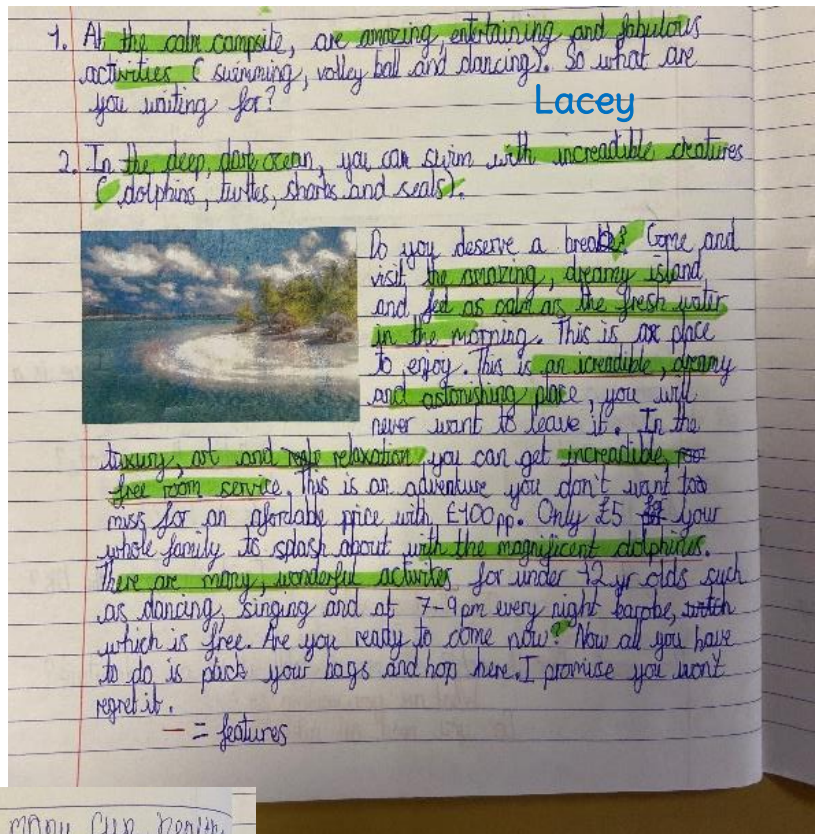 1. At the calm campsite, are amazing, entertaining and fabulous
activities ( swimming, volley ball and dancing). So what are
you waiting for?
Lacey
2. In the deep, dark ocean, you can swim with increadible creatures
( dolphins, turtles, sharks and seals).
Do you deserve a break? Come and
visit the amazing, dreamy island
and feel as calm as the fresh water
in the morning. This is a place
to enjoy. This is an icreadible, dreamy
and astonishing place, you will
never want to leave it. In the
luxury, art and relaxation you can get increadible,
free room service. This is an adventure you don't want to
miss for an afordable price with £100pp. Only £5 your
whole family to splash about with the magnificent dolphines.
There are many, wonderful activites for under 12 yr olds such
as dancing, singing and at 7-9pm every night
which is free. Are you ready to come now? Now all you have
to do is pack your bags and hop here. I promise you wont
regret it.
— = features
many